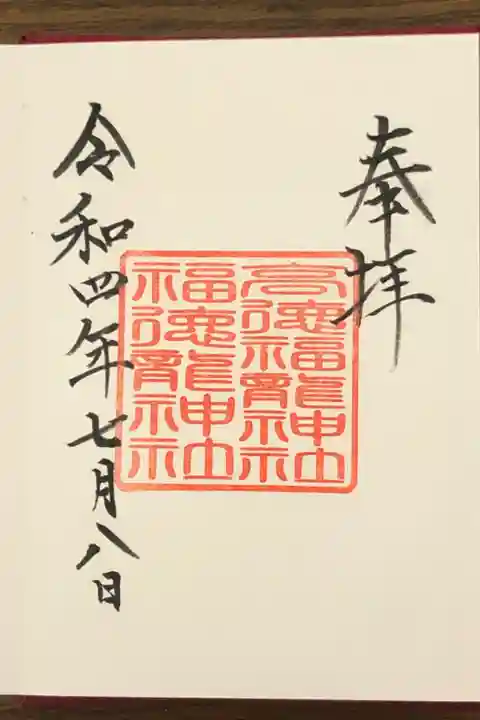 奉拝
高德福龍神社
福德龍神社
令和四年七月八日